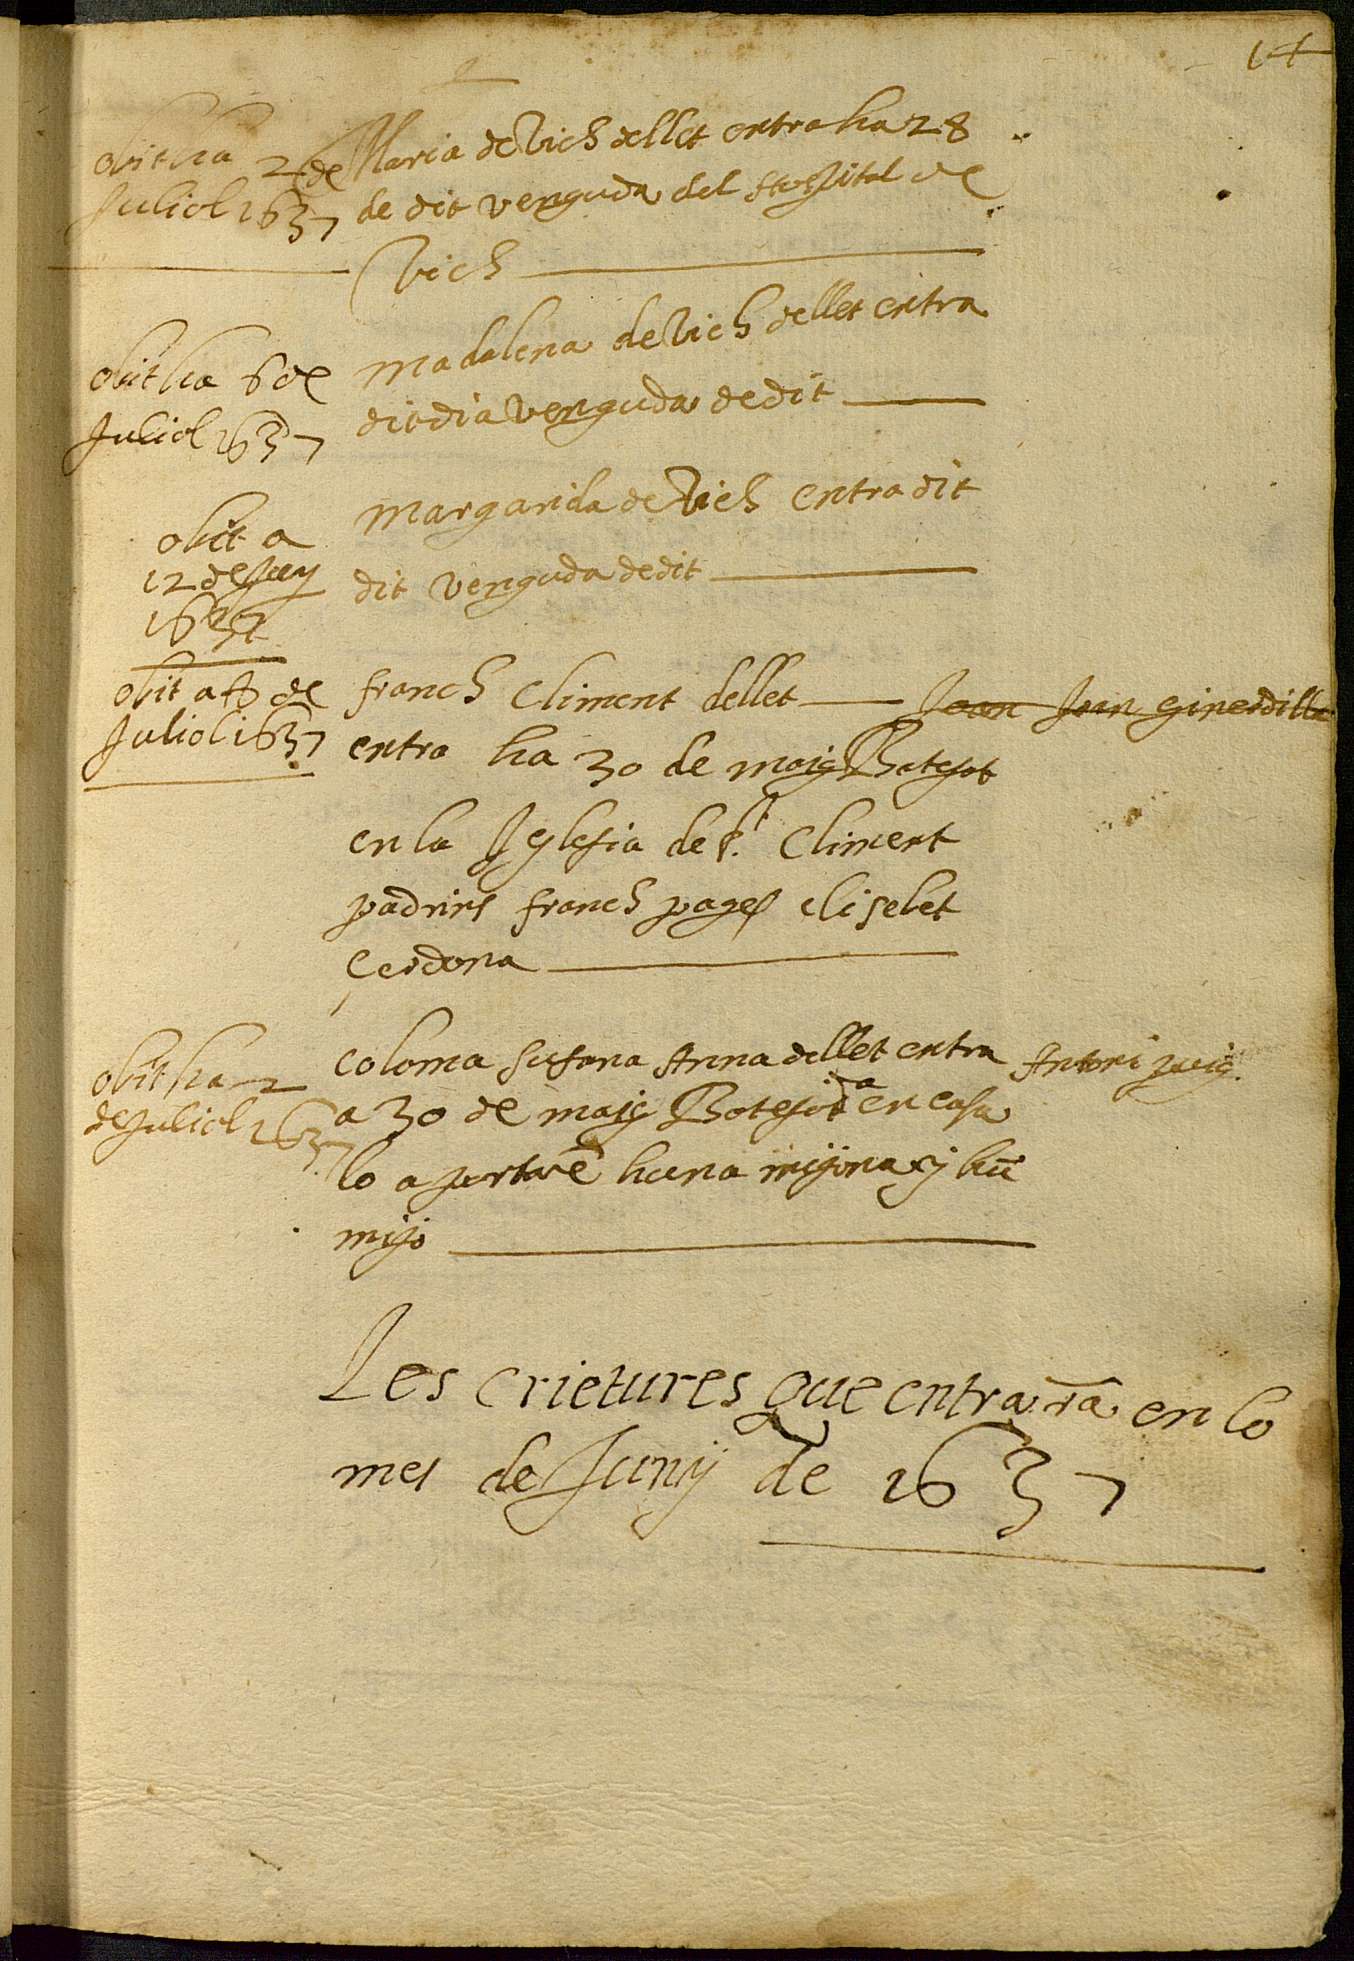 14
obit ha 2 de
Juliol 1637
Maria de Vich dellet entra ha 28
de dit venguda del Hospital de
Vich
obit ha 6 de
Juliol 1637
madalena de Vich dellet entra
dit dia venguda de dit
obit a
12 de Juny
1637
margarida de Vich entra dit
dit venguda de dit
obit a 8 de
Juliol 1637
franch Climent dellet
Joan Joan
entra ha 30 de maig Batejat
en la Iglesia de St. Climent
padrins franch pages elisebet
Cerdona
obit ha 2
de Juliol 1637
coloma susana Anna dellet entra
Antoni puig
a 30 de maig Botejada en casa
lo aportarē huna mijona y hū
mijo
Les crietures que entrarā en lo
mes de Juny de 1637